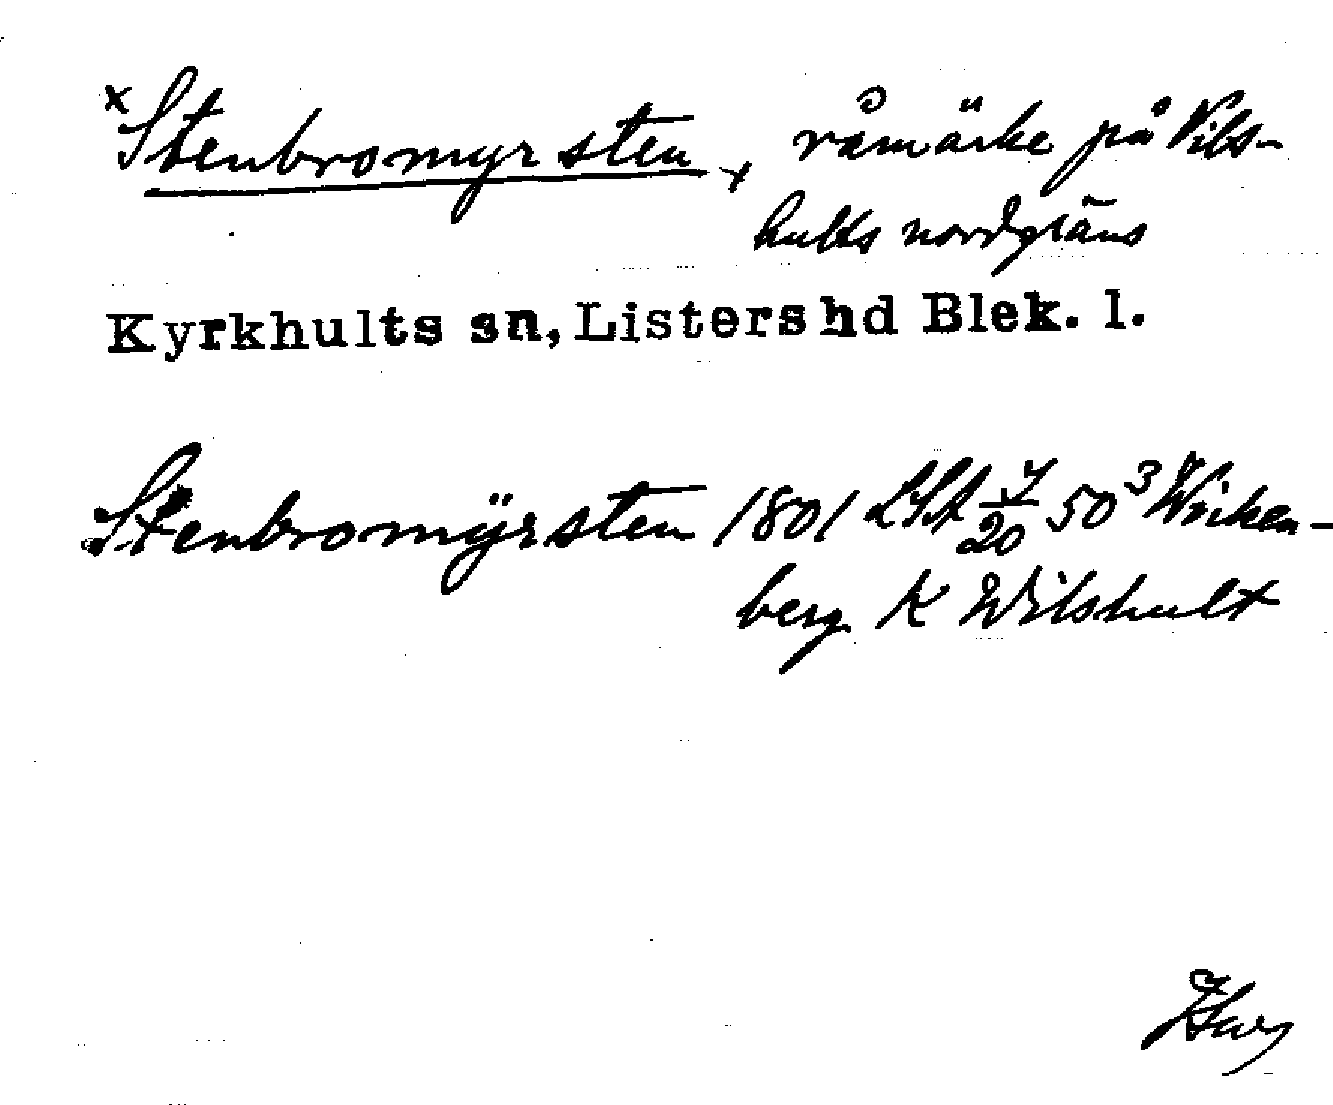 x Stenbromyrsten, råmärke på Vils-
hults nordgräns
Kyrkhults sn, Listers hd Blek. l.
Stenbromÿrsten 1801 LSA 7/20 50³ Wirken-
berg K Wilshult